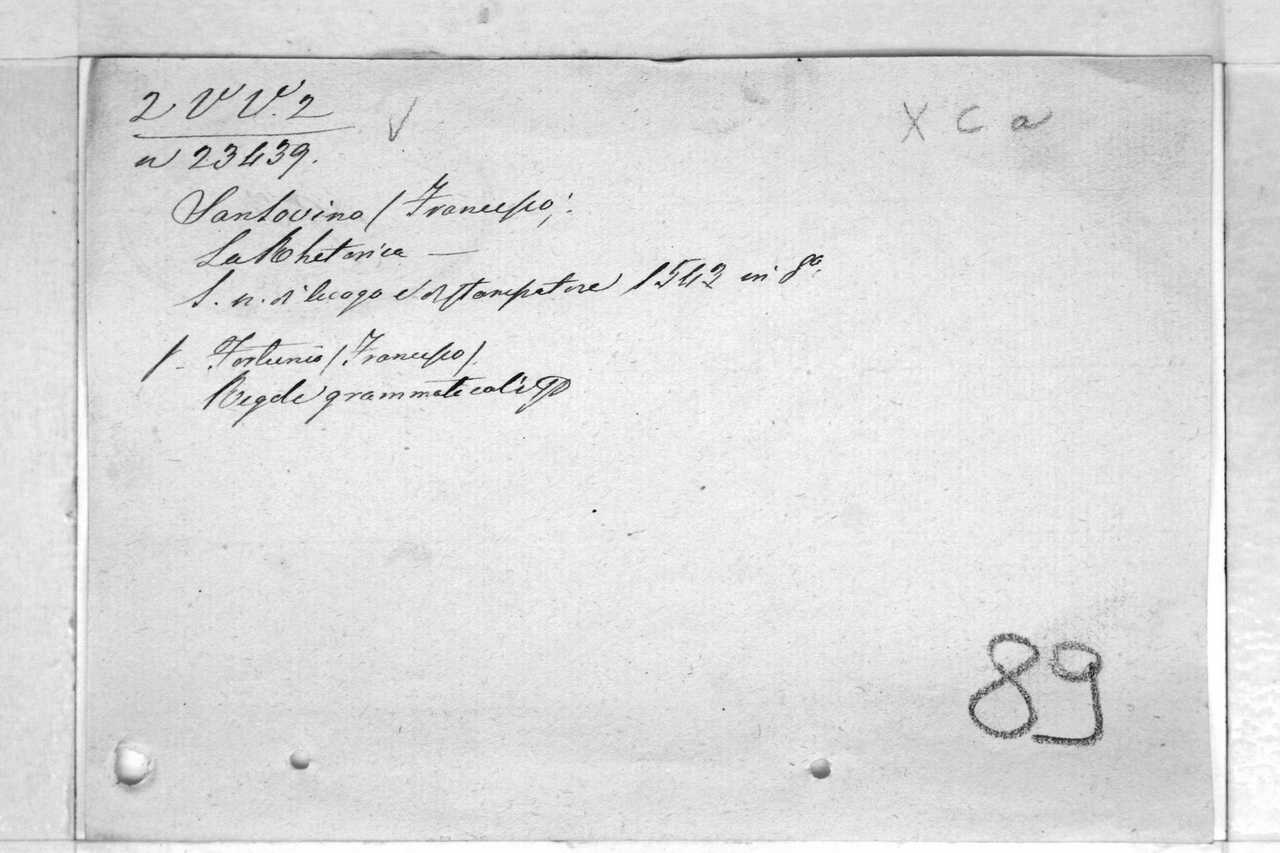 2 V V. 2
n 23439.
X C a
Sansovino (Francesco)
La Rhetorica —
S. n. di luogo e di stampatore 1543 in 8º.
Fortunio (Francesco)
Regole grammaticali
89